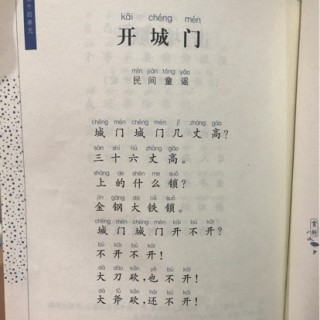 kāi chéng mén
开城门
mín jiān tóng yáo
民间童谣
chéng mén chéng mén jǐ zhàng gāo
城门城门几丈高？
sān shí liù zhàng gāo
三十六丈高。
shàng de shén me suǒ
上的什么锁？
jīn gāng dà tiě suǒ
金钢大铁锁。
chéng mén chéng mén kāi bù kāi
城门城门开不开？
bù kāi bù kāi
不开不开！
dà dāo kǎn yě bù kāi
大刀砍，也不开！
dà fǔ kǎn hái bù kāi
大斧砍，还不开！